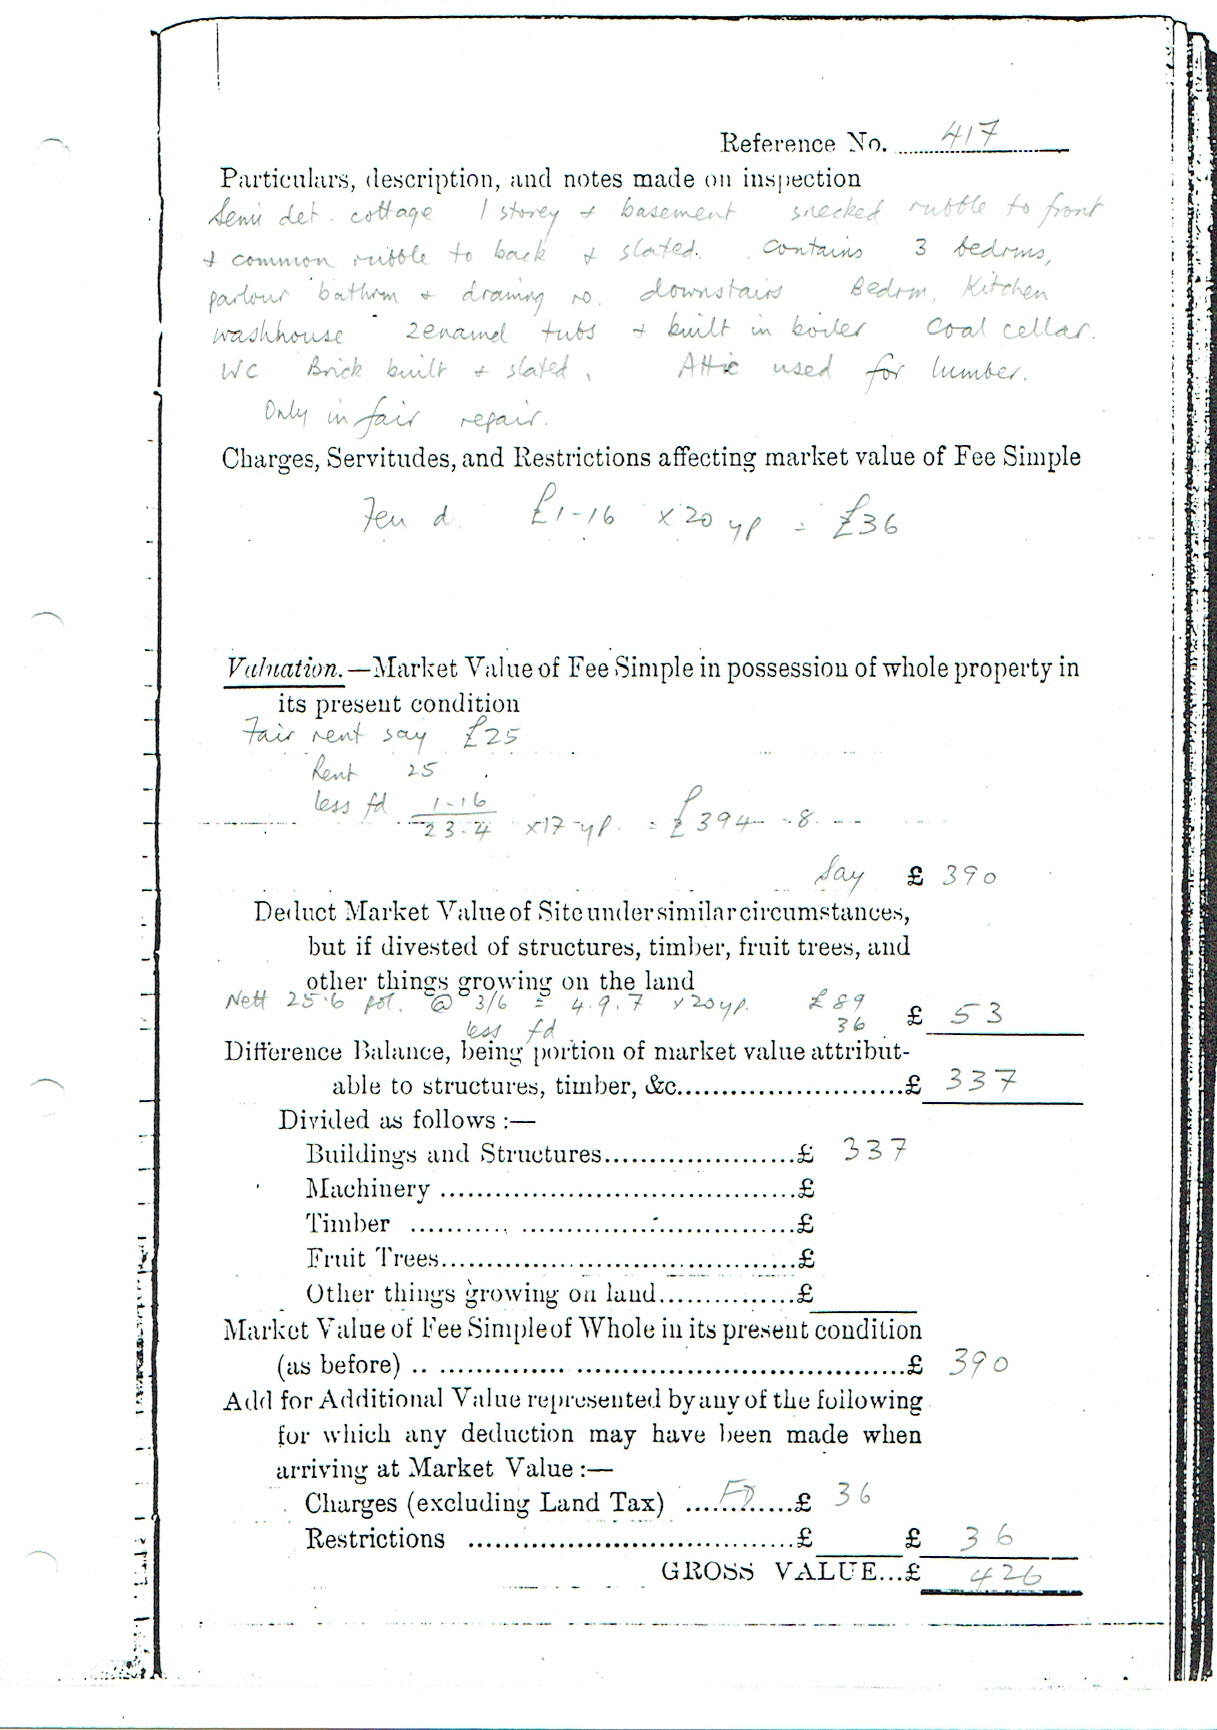 Reference No. 417
Particulars, description, and notes made on inspection
Semi det. cottage 1 storey + basement snecked rubble to front
+ common rubble to back + slated. Contains 3 bedrms,
parlour bathrm + drawing ro. downstairs Bedrm, Kitchen
washhouse 2 enamel tubs + built in boiler Coal cellar.
WC Brick built + slated, Attic used for lumber.
Only in fair repair.
Charges, Servitudes, and Restrictions affecting market value of Fee Simple
Feu d. £1-16 x 20 yp = £36
Valuation.—Market Value of Fee Simple in possession of whole property in
its present condition
Fair rent say £25
Rent 25
less fd 1-16
23-4 x 17 yp. = £394-8
Say £ 390
Deduct Market Value of Site under similar circumstances,
but if divested of structures, timber, fruit trees, and
other things growing on the land
Nett 25.6 pol. @ 3/6 = 4.9.7 x 20 yp. £89
less fd 36 £ 53
Difference Balance, being portion of market value attribut-
able to structures, timber, &c.......................£ 337
Divided as follows :—
Buildings and Structures.....................£ 337
Machinery .......................................£
Timber ..........................................£
Fruit Trees.......................................£
Other things growing on land...............£
Market Value of Fee Simple of Whole in its present condition
(as before) .. ....................................................£ 390
Add for Additional Value represented by any of the following
for which any deduction may have been made when
arriving at Market Value :—
Charges (excluding Land Tax) ....FD.....£ 36
Restrictions ....................................£ £ 36
GROSS VALUE...£ 426